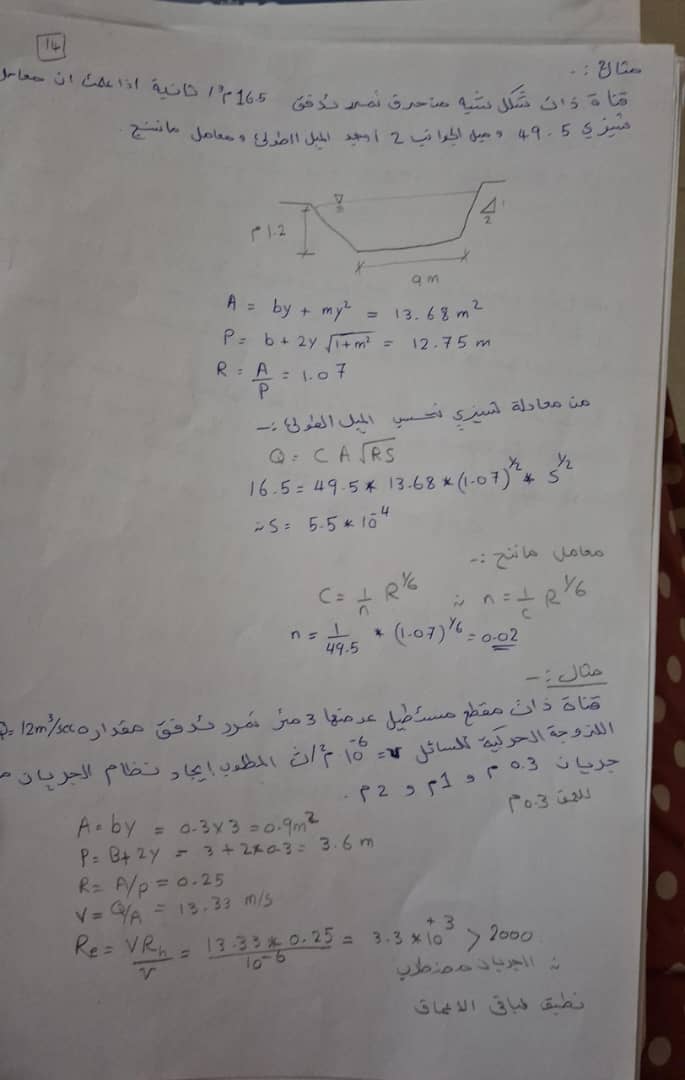 14
مثال :-
قناة ذات شكل شبه منحرف تمرر تدفق 16.5 م³/ ثانية اذا علمت ان معامل
شيزي 49.5 وميل الجوانب 2 أوجد الميل الطولي ومعامل ماننج.
1.2 م
1
2
9 m
A = by + my² = 13.68 m²
P = b + 2y √(1+m²) = 12.75 m
R = A/P = 1.07
من معادلة شيزي نحسب الميل الطولي :-
Q = C A √RS
16.5 = 49.5 * 13.68 * (1.07)^½ * S^½
∴ S = 5.5 * 10⁻⁴
معامل ماننج :-
C = 1/n R^1/6 ∴ n = 1/C R^1/6
n = 1/49.5 * (1.07)^1/6 = 0.02
مثال :-
قناة ذات مقطع مستطيل عرضها 3 متر تمرر تدفق مقداره Q= 12m³/sec
اللزوجة الحركية للسائل ν = 10⁻⁶ م²/ث المطلوب ايجاد نظام الجريان
جريان 0.3 م و 1م و 2م .
للعمق 0.3م
A = by = 0.3x3 = 0.9m²
P = B+2y = 3 + 2*0.3 = 3.6 m
R = A/p = 0.25
V = Q/A = 13.33 m/s
Re = VRh/ν = 13.33 * 0.25/10⁻⁶ = 3.3 * 10⁺³ > 2000
∴ الجريان مضطرب
نطبق لباقي الاعماق